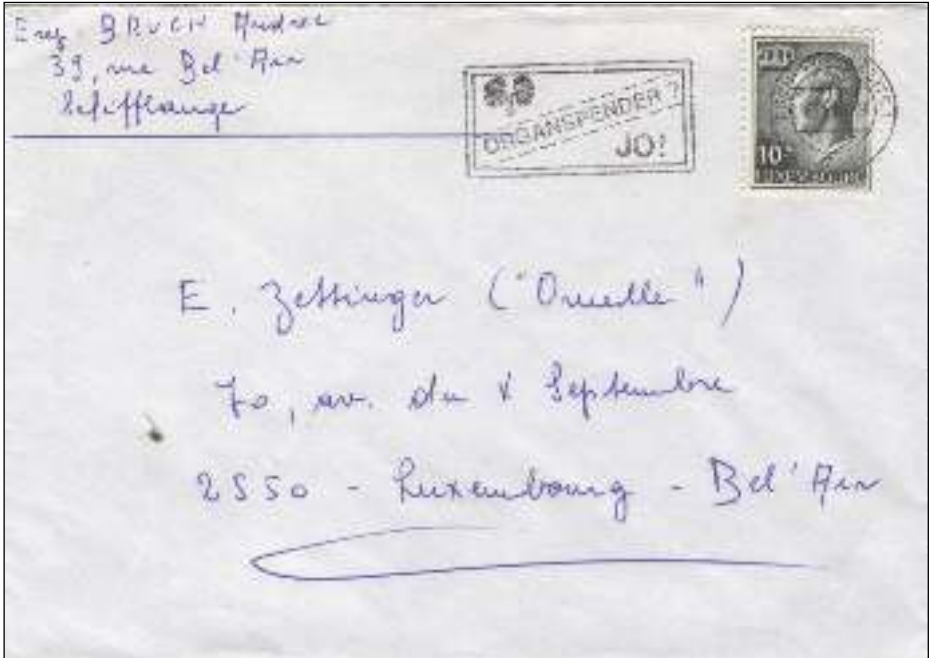 BRUCH
39, rue Bel'Air
Schifflange
ORGANSPENDER ?
JO!
10F
LUXEMBOURG
E. Zettinger ("Oruelle")
70, av. du X Septembre
2550 - Luxembourg - Bel'Air